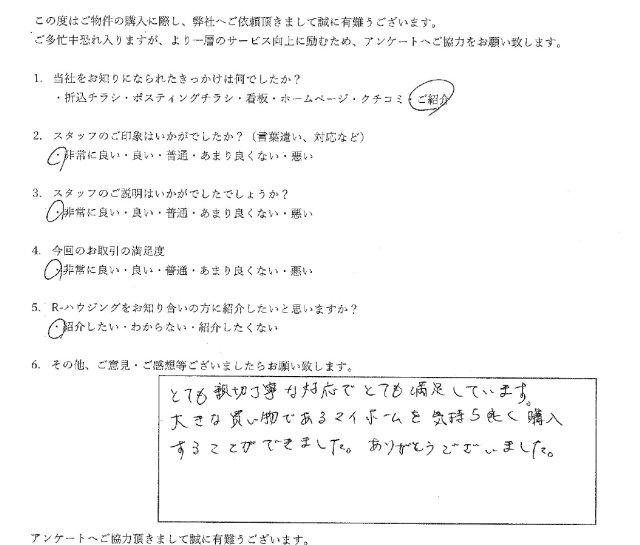 この度はご物件の購入に際し、弊社へご依頼頂きまして誠に有難うございます。
ご多忙中恐れ入りますが、より一層のサービス向上に励むため、アンケートへご協力をお願い致します。
1. 当社をお知りになられたきっかけは何でしたか？
・折込チラシ・ポスティングチラシ・看板・ホームページ・クチコミ・ご紹介
2. スタッフのご印象はいかがでしたか？（言葉遣い、対応など）
・非常に良い・良い・普通・あまり良くない・悪い
3. スタッフのご説明はいかがでしたでしょうか？
・非常に良い・良い・普通・あまり良くない・悪い
4. 今回のお取引の満足度
・非常に良い・良い・普通・あまり良くない・悪い
5. R-ハウジングをお知り合いの方に紹介したいと思いますか？
・紹介したい・わからない・紹介したくない
6. その他、ご意見・ご感想等ございましたらお願い致します。
とても親切丁寧な対応でとても満足しています。
大きな買い物であるマイホームを気持ち良く購入
することができました。ありがとうございました。
アンケートへご協力頂きまして誠に有難うございます。